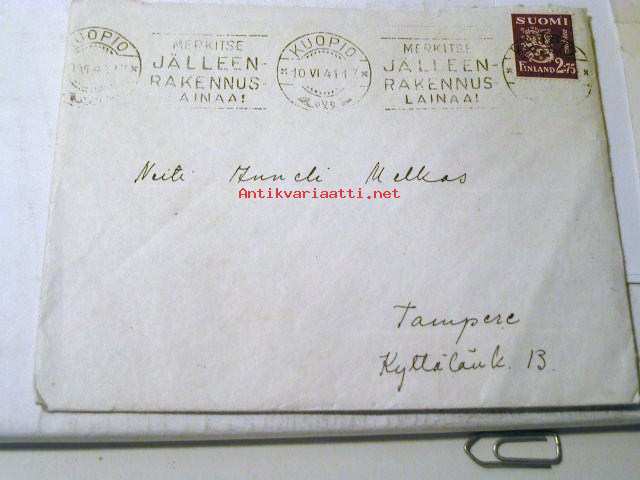 KUOPIO
MERKITSE
JÄLLEEN-
RAKENNUS
AINAA!
KUOPIO
10.VI.41.17
MERKITSE
JÄLLEEN-
RAKENNUS-
LAINAA!
SUOMI
FINLAND 2.75
Neiti Anneli Melkas
Antikvariaatti.net
Tampere
Kyttälänk. 13.